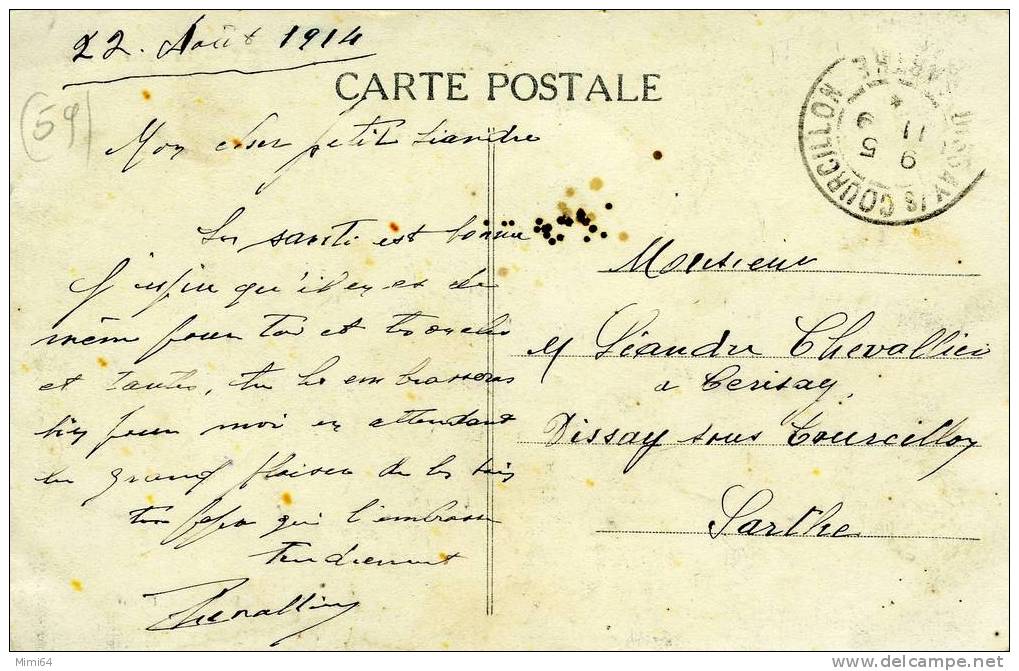 22. Août 1914
CARTE POSTALE
(59)
Mon cher petit Léandre
La santé est bonne
J'espère qu'il en es de
même pour toi et tes oncles
et tantes, tu les embrasseras
bien pour moi en attendant
le grand plaisir de les voir
ton papa qui t'embrasse
tendrement
Chevallier
DISSAY-S-COURCILLON
SARTHE
9
11
5 9
Monsieur
M Léandre Chevallier
a Cerisay
Dissay sous Courcillon
Sarthe
Mimi64
delcampe.net